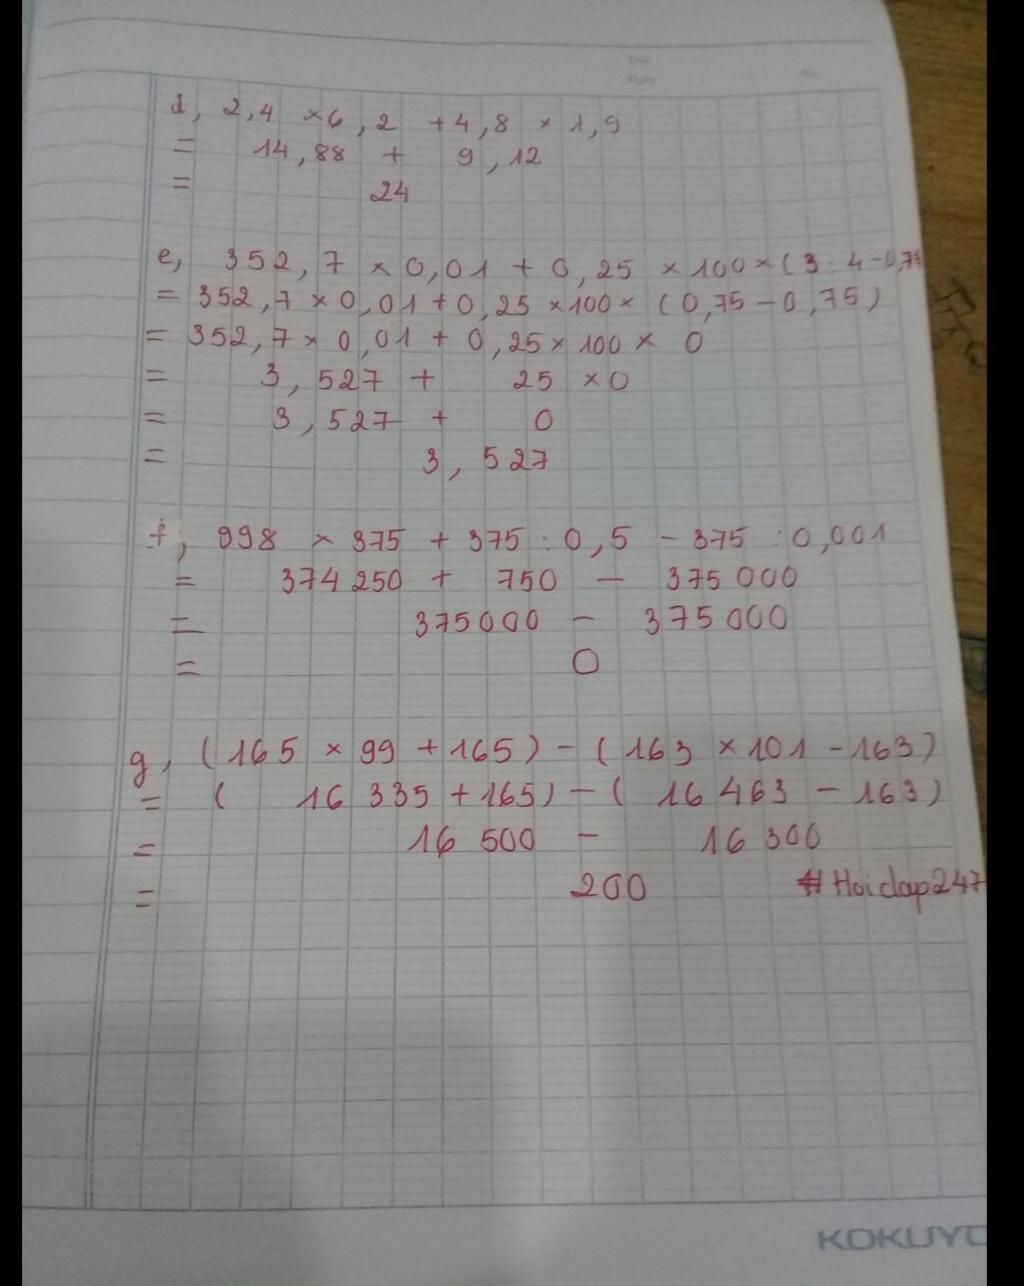 Thứ
Ngày No.
d, 2,4 × 6,2 + 4,8 × 1,9
= 14,88 + 9,12
= 24
e, 352,7 × 0,01 + 0,25 × 100 × (3 : 4 - 0,75
= 352,7 × 0,01 + 0,25 × 100 × (0,75 - 0,75)
= 352,7 × 0,01 + 0,25 × 100 × 0
= 3,527 + 25 × 0
= 3,527 + 0
= 3,527
f, 998 × 375 + 375 : 0,5 - 375 : 0,001
= 374 250 + 750 - 375 000
= 375000 - 375 000
= 0
g, (165 × 99 + 165) - (163 × 101 - 163)
= ( 16 335 + 165) - ( 16 463 - 163)
= 16 500 - 16 300
= 200 #Hoidap247
KOKUYO